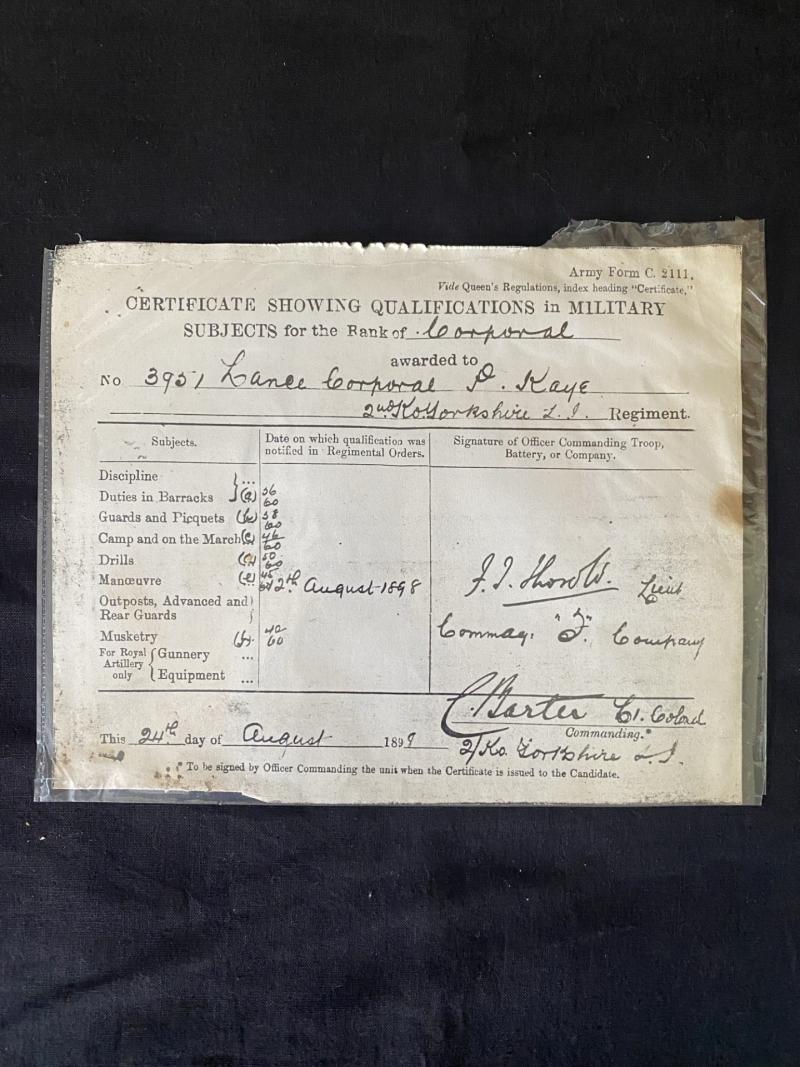 Army Form C. 2111.
Vide Queen's Regulations, index heading "Certificate,"
CERTIFICATE SHOWING QUALIFICATIONS in MILITARY
SUBJECTS for the Rank of Corporal
awarded to
No 3951 Lance Corporal P. Kaye
2nd Ko Yorkshire L.I. Regiment.
Subjects. Date on which qualification was notified in Regimental Orders. Signature of Officer Commanding Troop, Battery, or Company.
Discipline ...
Duties in Barracks (a) 56/60
Guards and Picquets (b) 58/60
Camp and on the March (c) 46/60
Drills 50/60
Manœuvre (e) 45/60 12th August 1898
Lieut
Outposts, Advanced and
Rear Guards
Musketry (f) 42/60
Commdg: "F" Company
For Royal Artillery only
Gunnery ...
Equipment ...
C Barter Lt. Colonel
Commanding.*
This 24th day of August 1899
2/Ko. Yorkshire L.I.
* To be signed by Officer Commanding the unit when the Certificate is issued to the Candidate.